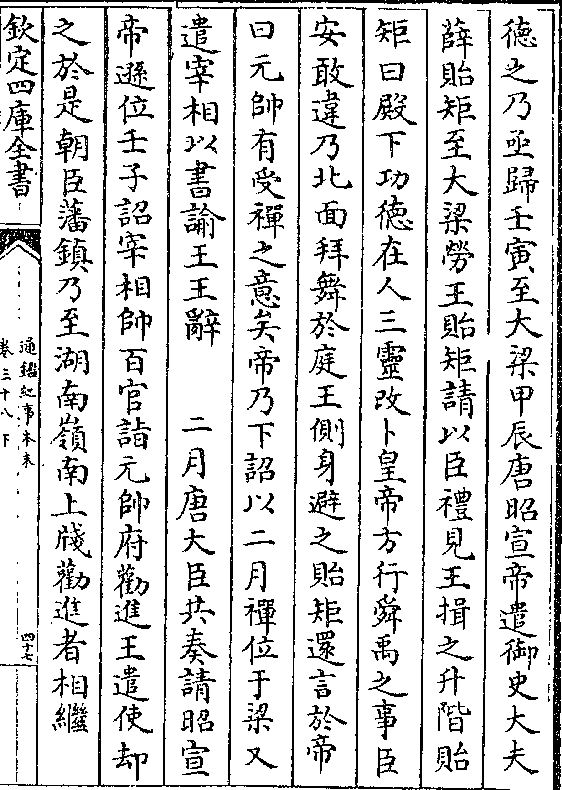 德之乃亟歸壬寅至大梁甲辰唐昭宣帝遣御史大夫
薛貽矩至大梁勞王貽矩請以臣禮見王揖之升階貽
矩曰殿下功德在人三靈改卜皇帝方行舜禹之事臣
安敢違乃北面拜舞於庭王側身避之貽矩還言於帝
曰元帥有受禪之意矣帝乃下詔以二月禪位于梁又
遣宰相以書諭王王辭　二月唐大臣共奏請昭宣
帝遜位壬子詔宰相帥百官詣元帥府勸進王遣使却
之於是朝臣藩鎮乃至湖南嶺南上牋勸進者相繼
欽定四庫全書
通鑑紀事本末
卷三十八下
四十七